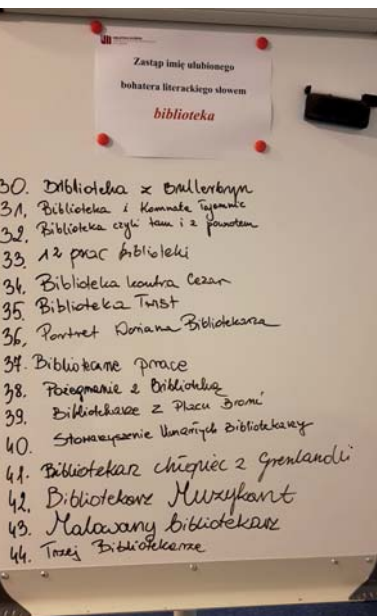 Zastąp imię ulubionego
bohatera literackiego słowem
biblioteka
30. Biblioteka z Bullerbyn
31. Biblioteka i Komnata Tajemnic
32. Biblioteka czyli tam i z powrotem
33. 12 prac biblioteki
34. Biblioteka kontra Cezar
35. Biblioteka Twist
36. Portret Doriana Bibliotekarza
37. Bibliotekane prace
38. Pożegnanie z Biblioteką
39. Bibliotekarze z Placu Broni
40. Stowarzyszenie Umarłych Bibliotekarzy
41. Bibliotekarz chłopiec z Grenlandii
42. Bibliotekarz Muzykant
43. Malowany bibliotekarz
44. Trzej Bibliotekarze